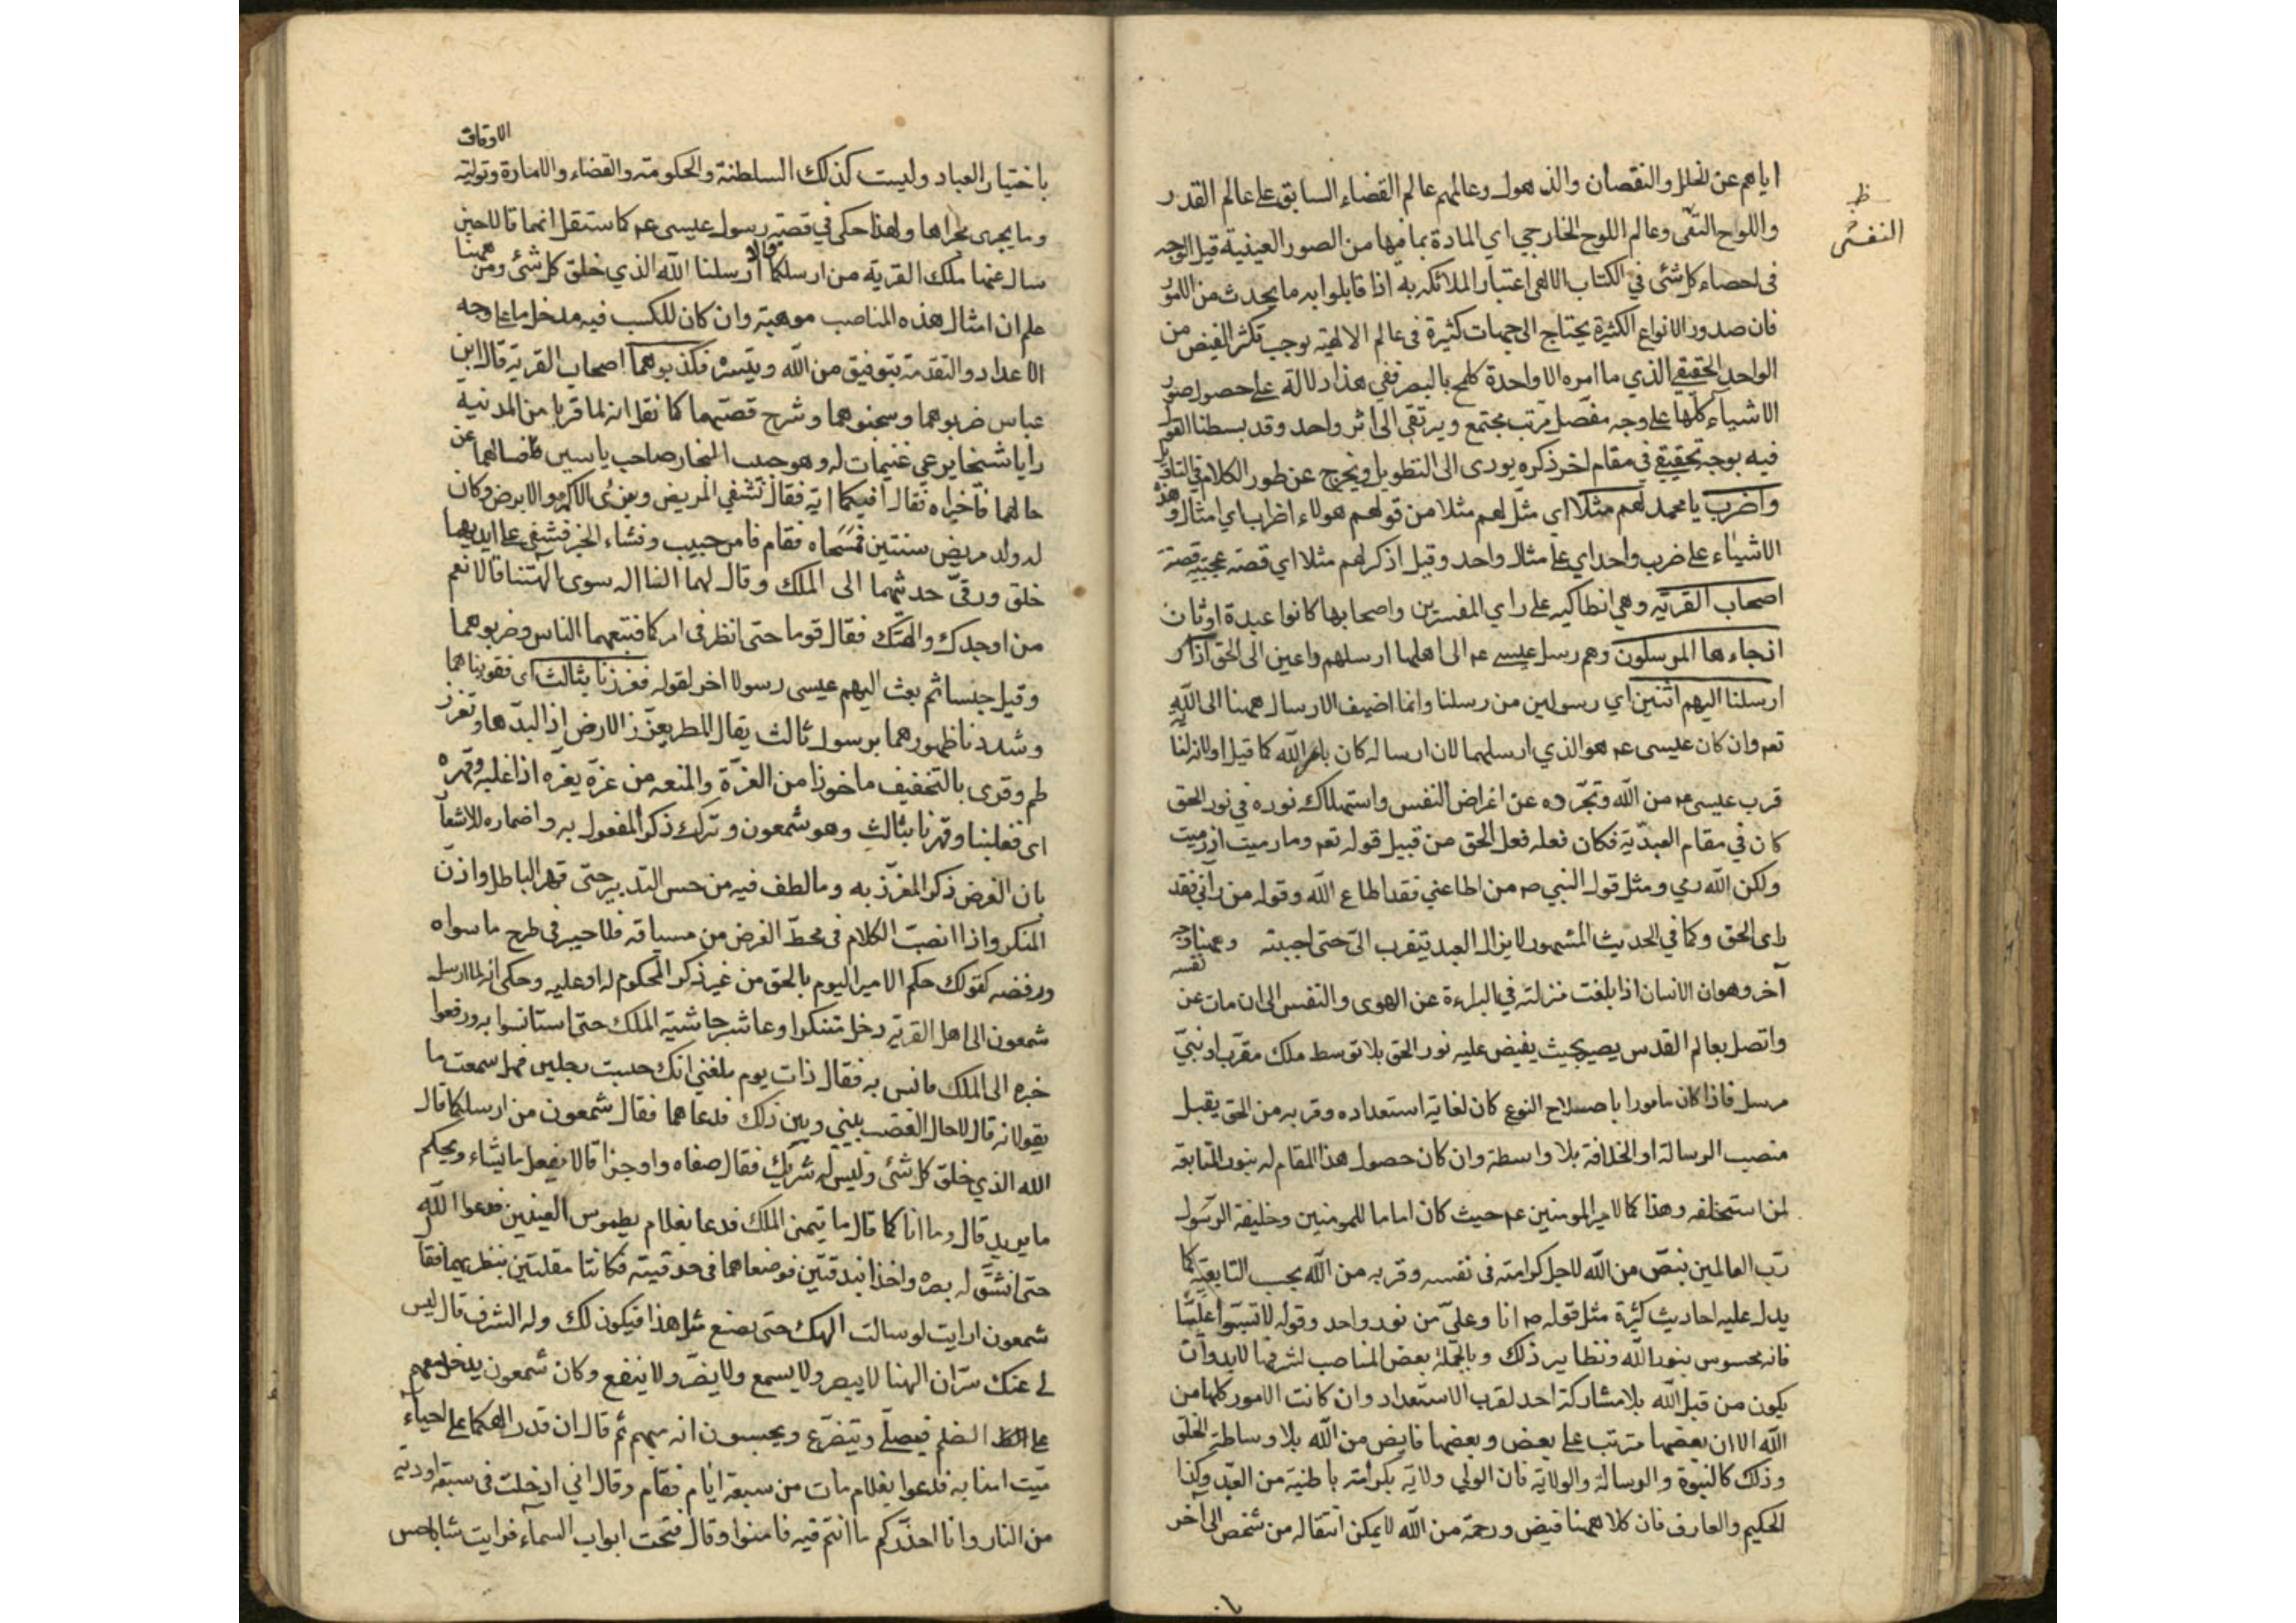 اياهم عن الخلل والنقصان والذهول وعالمهم عالم القضاء السابق على عالم القدر
ظ
النقشى
واللوح النقى وعالم اللوح الخارجي اي المادة بما فيها من الصور العينية قيل الوجه
فى احصاء كل شئ في الكتاب الالهى اعتبار الملائكه به اذا قابلوا به ما يحدث من الامور
فان صدور الانواع الكثيرة يحتاج الى جهات كثيرة فى عالم الالهية يوجب تكثر الفيض من
الواحد الحقيقي الذي ما امره الا واحدة كلمح بالبصر ففي هذا دلالة على حصول صور
الاشياء كلها على وجه مفصل مرتب مجتمع ويرتقى الى اثر واحد وقد بسطنا القول
فيه بوجه تحقيقي في مقام اخر ذكره يودى الى التطويل ويخرج عن طور الكلام في
واضرب يا محمد لهم مثلا اي مثل لهم مثلا من قولهم هولاء اضراب اي امثال وهذه
الاشياء على ضرب واحد اي على مثال واحد وقيل اذكر لهم مثلا اي قصة عجيبة قصة
اصحاب القرية وهي انطاكيه على راي المفسرين واصحابها كانوا عبدة اوثان
اذ جاءها المرسلون وهم رسل عيسى عم الى اهلها ارسلهم داعين الى الحق اذ
ارسلنا اليهم اثنين اي رسولين من رسلنا وانما اضيف الارسال ههنا الى الله
تعم وان كان عيسى عم هو الذي ارسلهما لان ارساله كان بامر الله كما قيل او لانه
قرب عيسى عم من الله وتجرده عن اغراض النفس واستهلاك نوره في نور الحق
كان في مقام العبدية فكان فعله فعل الحق من قبيل قوله تعم وما رميت اذ رميت
ولكن الله رمي ومثل قول النبي ص من اطاعني فقد اطاع الله وقوله من رآني فقد
راى الحق وكما في الحديث المشهور لا يزال العبد يتقرب الىّ حتى احببته وههنا وجه
آخر وهو ان الانسان اذا بلغت منزلته في البراءة عن الهوى والنفس الى ان مات عن نفسه
واتصل بعالم القدس يصير بحيث يفيض عليه نور الحق بلا توسط ملك مقرب او نبيّ
مرسل فاذا كان مامورا باصلاح النوع كان لغاية استعداده وقربه من الحق يقبل
منصب الرسالة او الخلافة بلا واسطة وان كان حصول هذا المقام له بنور المتابعة
لمن استخلفه وهذا كما لامير المومنين عم حيث كان اماما للمومنين وخليفة الرسول
ربّ العالمين بنصّ من الله لاجل كرامته فى نفسه وقربه من الله بحب التابعية كما
يدل عليه احاديث كثرة مثل قوله ص انا وعليّ من نور واحد وقوله لا تسبّوا عليّا
فانه محسوس بنور الله ونظاير ذلك وبالجملة بعض المناصب لشرفها لابد وان
يكون من قبل الله بلا مشاركة احد لقرب الاستعداد وان كانت الامور كلها من
الله الا ان بعضها مترتب على بعض وبعضها فايض من الله بلا وساطة الخلق
وذلك كالنبوة والرسالة والولاية فان الولي ولايته بكرامة باطنية من العبد وكذا
الحكيم والعارف فان كلاهمنا فيض ورحمة من الله لا يمكن انتقاله من شخص الى آخر
الاوقاف
باختيار العباد وليست كذلك السلطنة والحكومة والقضاء والامارة وتولية
وما يجرى مجراها ولهذا حكى في قصة رسول عيسى عم كما ستقل انهما قالا حين
سال عنهما ملك القرية من ارسلكما قالا ارسلنا الله الذي خلق كل شئ ومن ههنا
علم ان امثال هذه المناصب موهبة وان كان للكسب فيه مدخل ما على وجه
الاعداد والتقدمة بتوفيق من الله وتيسره فكذبوهما اصحاب القرية قال ابن
عباس ضربوهما وسجنوهما وشرح قصتهما كما نقل انه لما قربا من المدنية
رايا شيخا يرعي غنيمات له وهو حبيب النجار صاحب ياسين فسالهما عن
حالهما فاخبراه فقال افيكما اية فقال نشفي المريض ونبرئ الاكمه والابرص وكان
له ولد مريض سنتين فمسحاه فقام فامن حبيب وفشاء الخبر فشفي على ايديهما
خلق ورقى حدثهما الى الملك وقال لهما النا اله سوى الهتنا قالا نعم
من اوجدك والهتك فقال قوما حتى انظر في امركما فتبعهما الناس وضربوهما
وقيل حبسا ثم بعث اليهم عيسى رسولا اخر لقوله فعززنا بثالث اى فقويناهما
وشددنا ظهورهما برسول ثالث يقال المطر يعزز الارض اذا لبدها وتعزز
وقرى بالتخفيف ماخوذا من العزة والمنعه من عزه يعزه اذا غلبه وقهره
اى فغلبنا وقهرنا بثالث وهو شمعون وترك ذكر المفعول به واضماره للاشعار
بان الغرض ذكر المعزز به وما لطف فيه من حسن التدبير حتى قهر الباطل واذن
المنكر واذا انصب الكلام فى محط الغرض من سياقه فلا حير فى طرح ما سواه
ورفضه كقولك حكم الامير اليوم بالحق من غير ذكر المحكوم له او عليه وحكى انه لما ارسل
شمعون الى اهل القرية دخل متنكرا وعاشر حاشية الملك حتى استانسوا به ورفعوا
خبره الى الملك فانس به فقال ذات يوم بلغني انك حبست رجلين فهل سمعت ما
يقولانه قال لا حال الغضب بيني وبين ذلك فدعاهما فقال شمعون من ارسلكما قال
الله الذي خلق كل شئ وليس له شريك فقال صفاه واوجزا قالا يفعل ما يشاء ويحكم
ما يريد قال وما اناكما قال ما يتمنى الملك فدعا بغلام مطموس العينين فدعوا الله
حتى انشق له بصره واخذا بندقتين فوضعاهما فى حدقيته فكانتا مقلتين ينظر بهما فقال
شمعون ارايت لو سالت الهك حتى يصنع مثل هذا فيكون لك وله الشرف قال ليس
لى عنك سرّ ان الهنا لا يبصر ولا يسمع ولا يضر ولا ينفع وكان شمعون يدخل معهم
على الصنم فيصلّي ويتضرع ويحسبون انه منهم ثم قال ان قدر الهكما على احياء
ميّت امنا به فدعوا بغلام مات من سبعة ايام فقام وقال اني ادخلت فى سبعة اودية
من النار وانا احذركم ما انتم فيه فامنوا وقال فتحت ابواب السماء فرايت شابا حسن